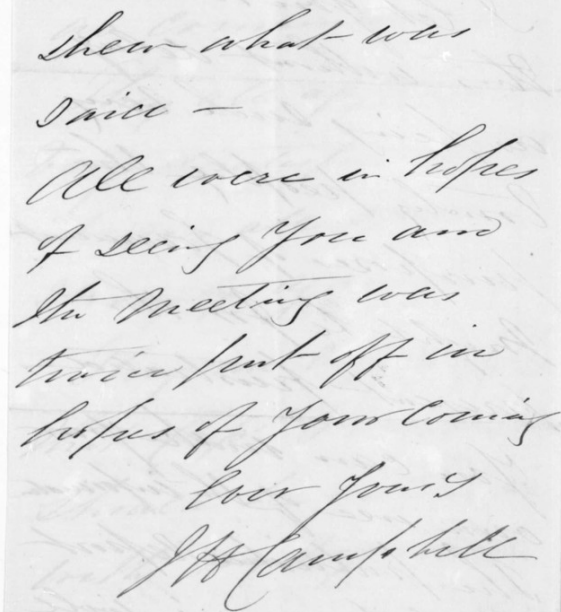 shew what was
said —
All were in hopes
of seeing You and
the Meeting was
twice put off in
hopes of Your Coming
Ever Yours
J H Campbell